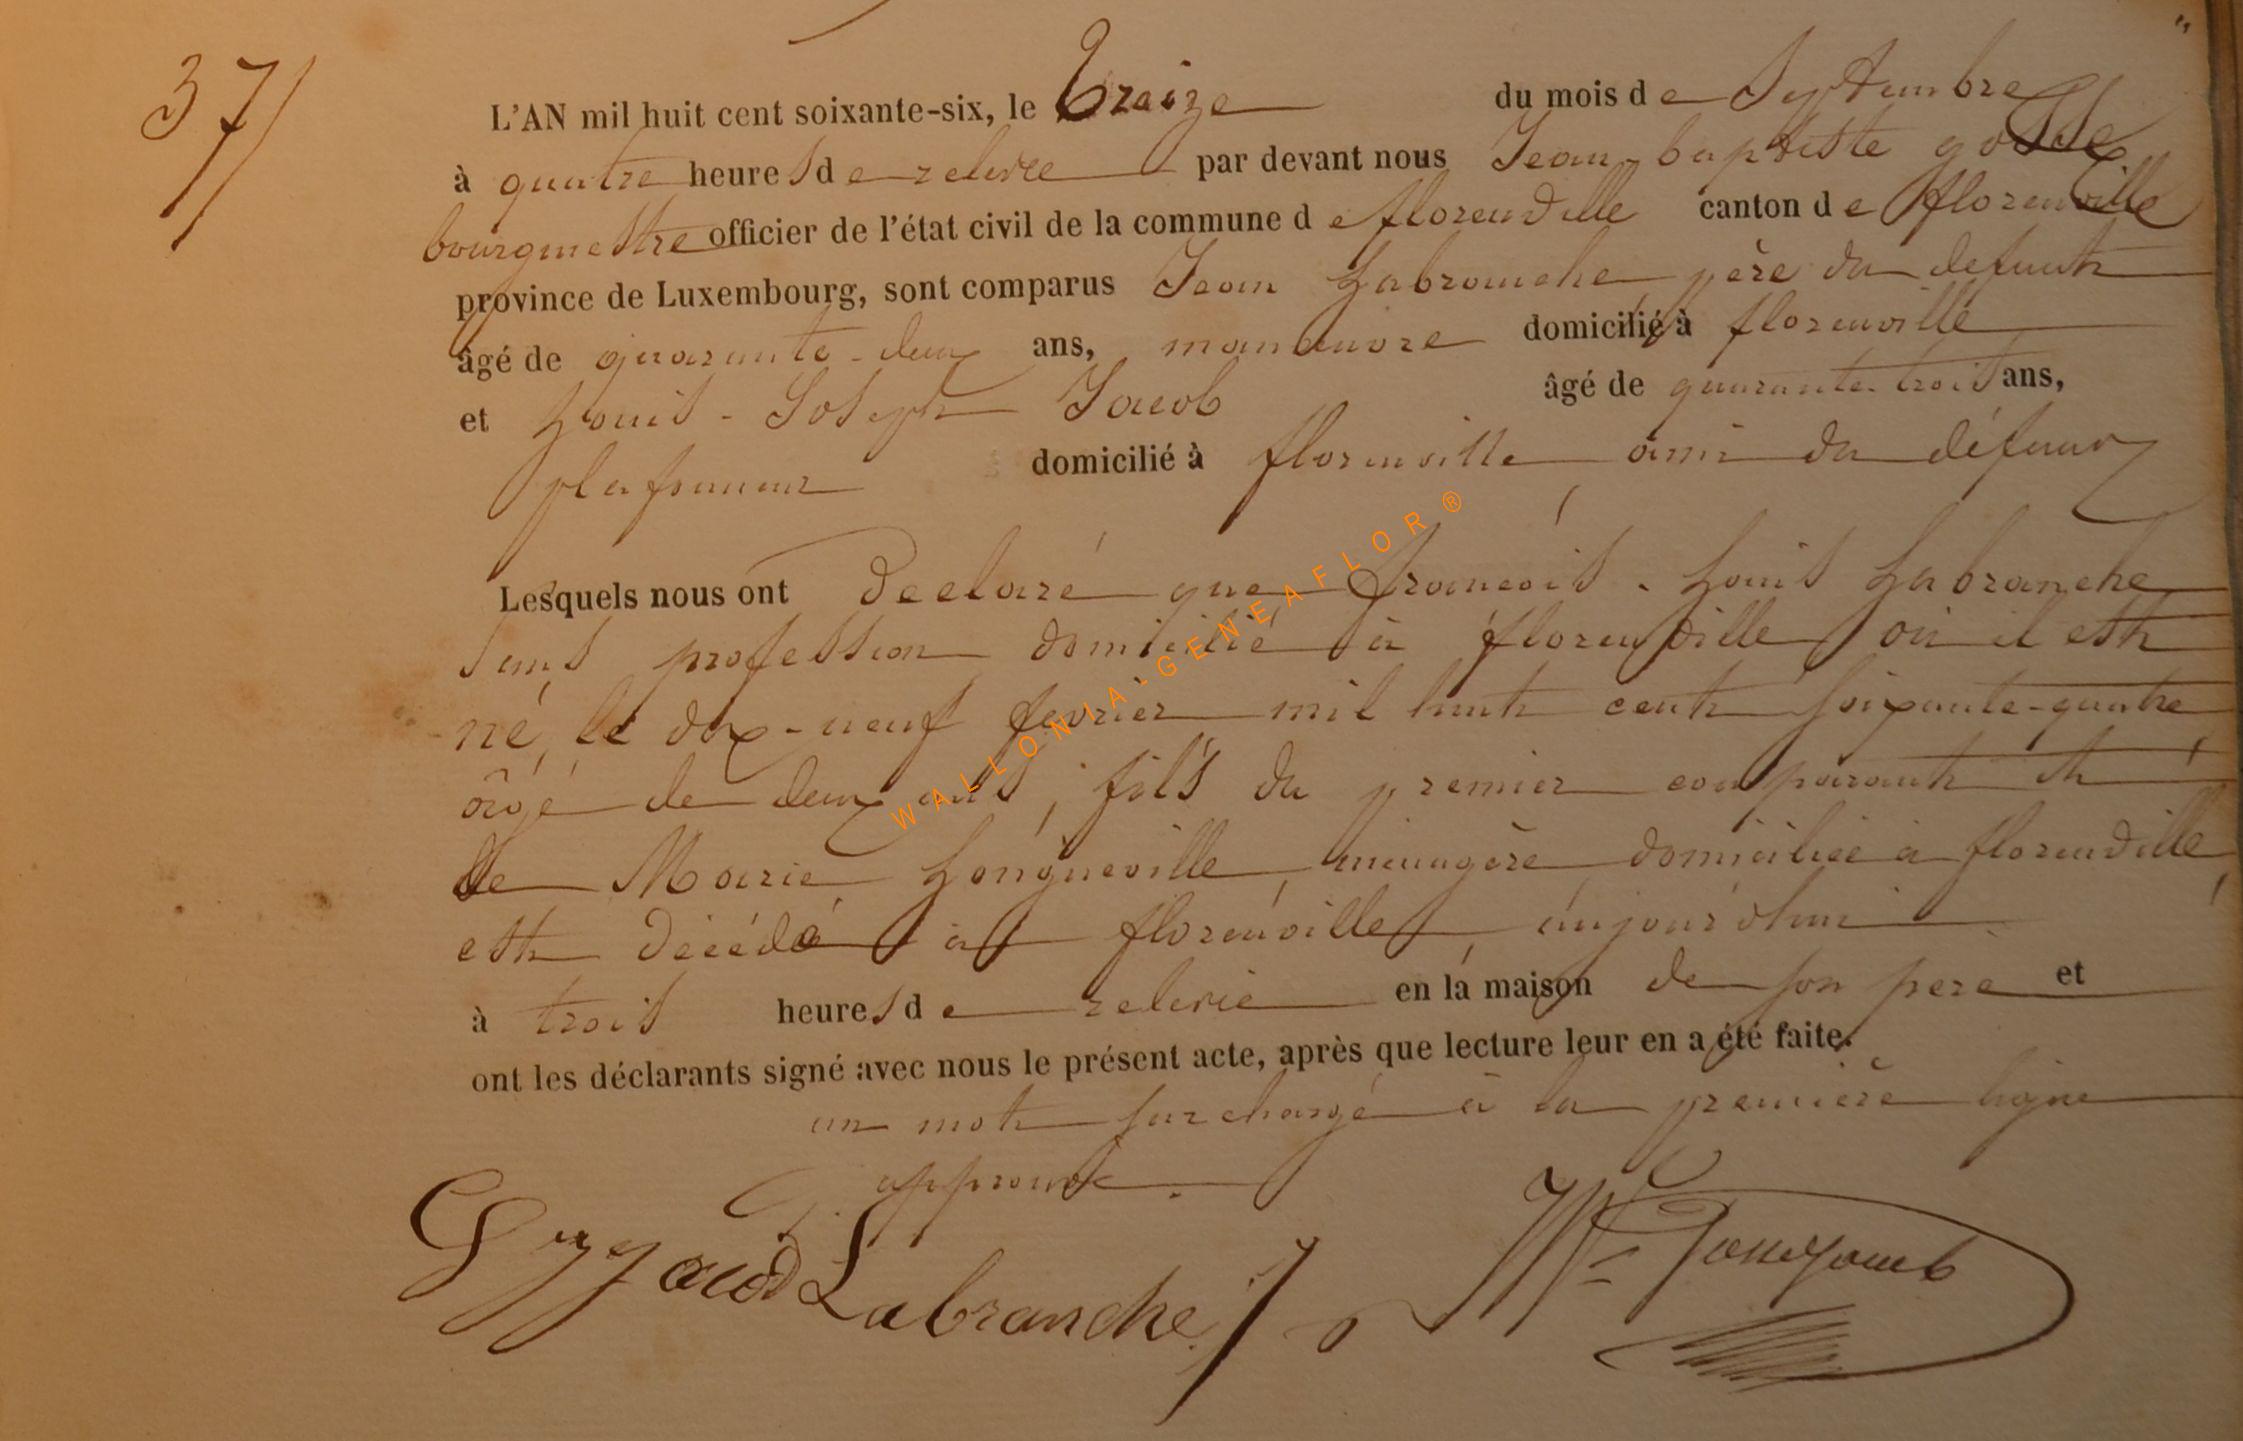 37/
L'AN mil huit cent soixante-six, le Treize du mois de Septembre
à quatre heures de relevée par devant nous Jean-baptiste
bourgmestre officier de l'état civil de la commune de florenville canton de florenville
province de Luxembourg, sont comparus Jean Labranche père du defunt
âgé de quarante-deux ans, manœuvre domicilié à florenville
et Louis-Joseph Jacob âgé de quarante-trois ans,
plafonneur domicilié à florenville ami du défunt
Lesquels nous ont declaré que francois-Louis Labranche
sans profession domicilié à florenville où il est
né, le dix-neuf fevrier mil huit cent soixante-quatre
âgé de deux ans, fils du premier comparant et
de Marie Longueville ménagère domiciliée à florenville
est décédé à florenville aujourd'hui
à trois heures de relevée en la maison de son pere et
ont les déclarants signé avec nous le présent acte, après que lecture leur en a été faite.
un mot surchargé à la première ligne
approuvé.
Labranche
WALLONIA-GENEAFLOR®